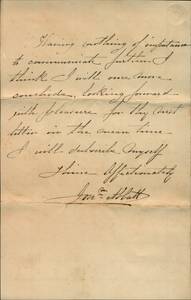 Having nothing of importance
to communicate further I
think I will once more
conclude, looking forward
with pleasure for thy next
letter in the mean time
I will subscribe myself
Thine Affectionately
Jon. Abbott